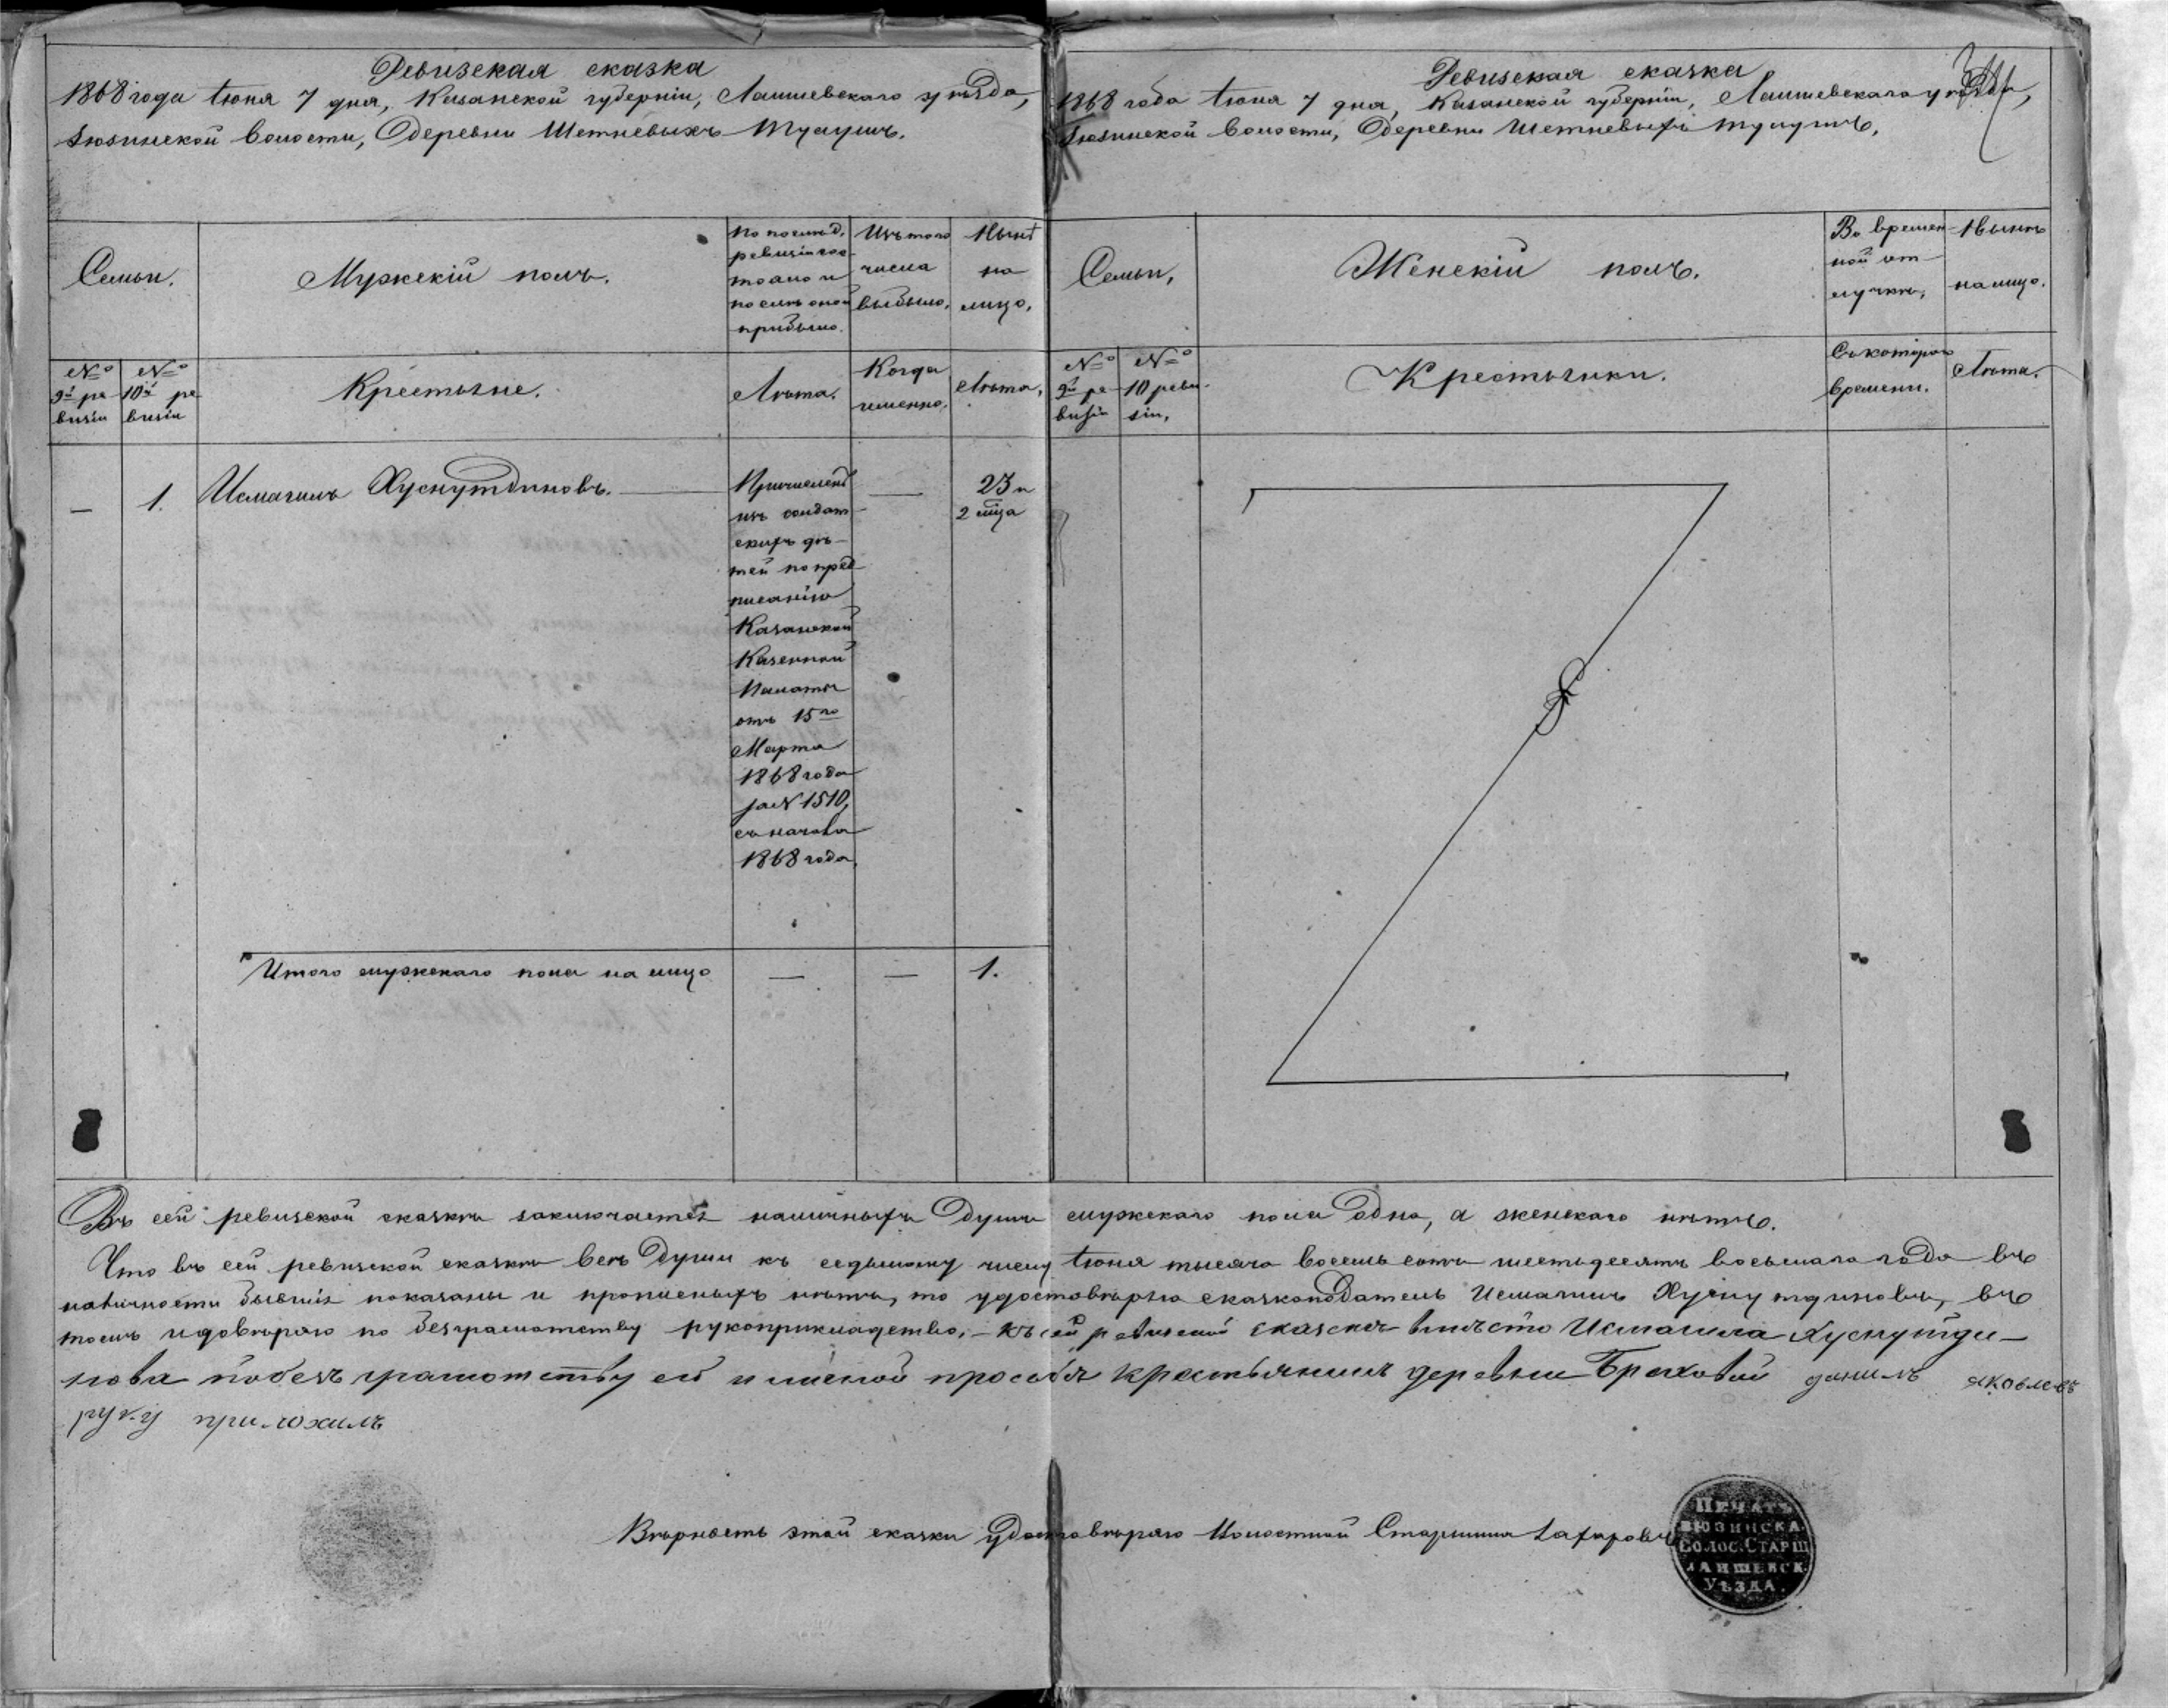 Ревизская сказка
1868 года Іюня 7 дня, Казанской губерніи, Лаишевскаго уѣзда,
волости, Деревни Шетневыхъ Тулушъ.
Семьи.
Мужескій полъ.
По послѣд.
ревизіи сос-
тояло и
послѣ оной
прибыло.
Изъ того
числа
выбыло.
Нынѣ
на
лицо.
№ 9й ре
визіи
№ 10й ре
визіи
Крестьяне.
Лѣта.
Когда
именно.
Лѣта.
—
1.
Исмагилъ Хуснутдиновъ.
Причисленъ
изъ солдат
скихъ дѣ-
тей по пред
писанію
Казанской
Казенной
Палаты
отъ 15го
Марта
1868 года
за № 1510,
съ начала
1868 года.
—
23 и
2 м͞ца
Итого мужескаго пола на лицо — — 1.
Ревизская сказка
1868 года Іюня 7 дня, Казанской губерніи, Лаишевскаго уѣзда,
волости, Деревни Шетневыхъ Тулушъ,
Семьи,
Женскій полъ.
Во времен
ной от-
лучкѣ,
Нынѣ
на лицо.
№ 9й ре
визіи
№ 10 реви
зіи,
Крестьянки.
Съ котораго
времени.
Лѣта.
Въ сей ревизской сказкѣ заключается наличныхъ Душъ мужескаго пола одна, а женскаго нѣтъ.
Что въ сей ревизской сказкѣ всѣ Души къ седьмому числу Іюня тысяча восемь сотъ шестьдесятъ восьмаго года въ
наличности бывшія показаны и прописныхъ нѣтъ, то удостовѣряю сказкоподатель Исмагилъ Хуснутдиновъ, въ
томъ и довѣряю по безграмотству рукоприкладство. – Къ сей ревизской сказске вместо Исмагила Хуснутди-
нова побезъ грамотству ево и личной прозбѣ крестьянинъ деревни Данилъ Яковлевъ
руку приложилъ
Вѣрность этой сказки удостовѣряю Волостной Старшина
ПЕЧАТЬ
ВОЛОС. СТАРШ
ЛАИШЕВСК.
УѢЗДА.